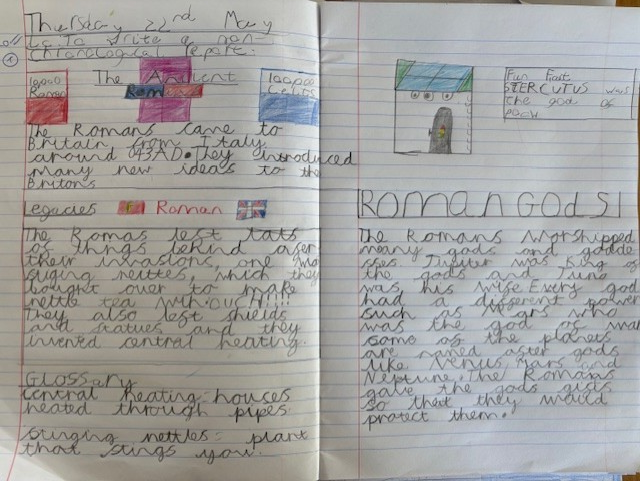 Thursday 22nd May
Lo: To write a non-
chronological report.
The Ancient
Romans
10,000
Romans
100,000
Celts
The Romans came to
Britain from Italy
around 043AD. They introduced
many new ideas to the
Britons
Legacies Roman
The Romas left lats
of things behind after
their invasions, one was
stging nettles, which they
bought over to make
nettle tea with OUCH!!!!
They also left shields
and statues and they
invened central heating.
Glossary
central heating: houses
heated through pipes.
Stinging nettles: plant
that stings you.
Fun Fact
STERCUTUS was
the god of
ROMAN GOdS!
The Romans worshipped
meany gods and godde
sses. Jupiter was King of
the gods and Juno
was his wife. Every god
had a different power
such as Mars who
was the god of war
some of the planets
are named after gods
like Venus, Mars and
Neptune. The Romans
gave the gods gifts
so that they would
protect them.